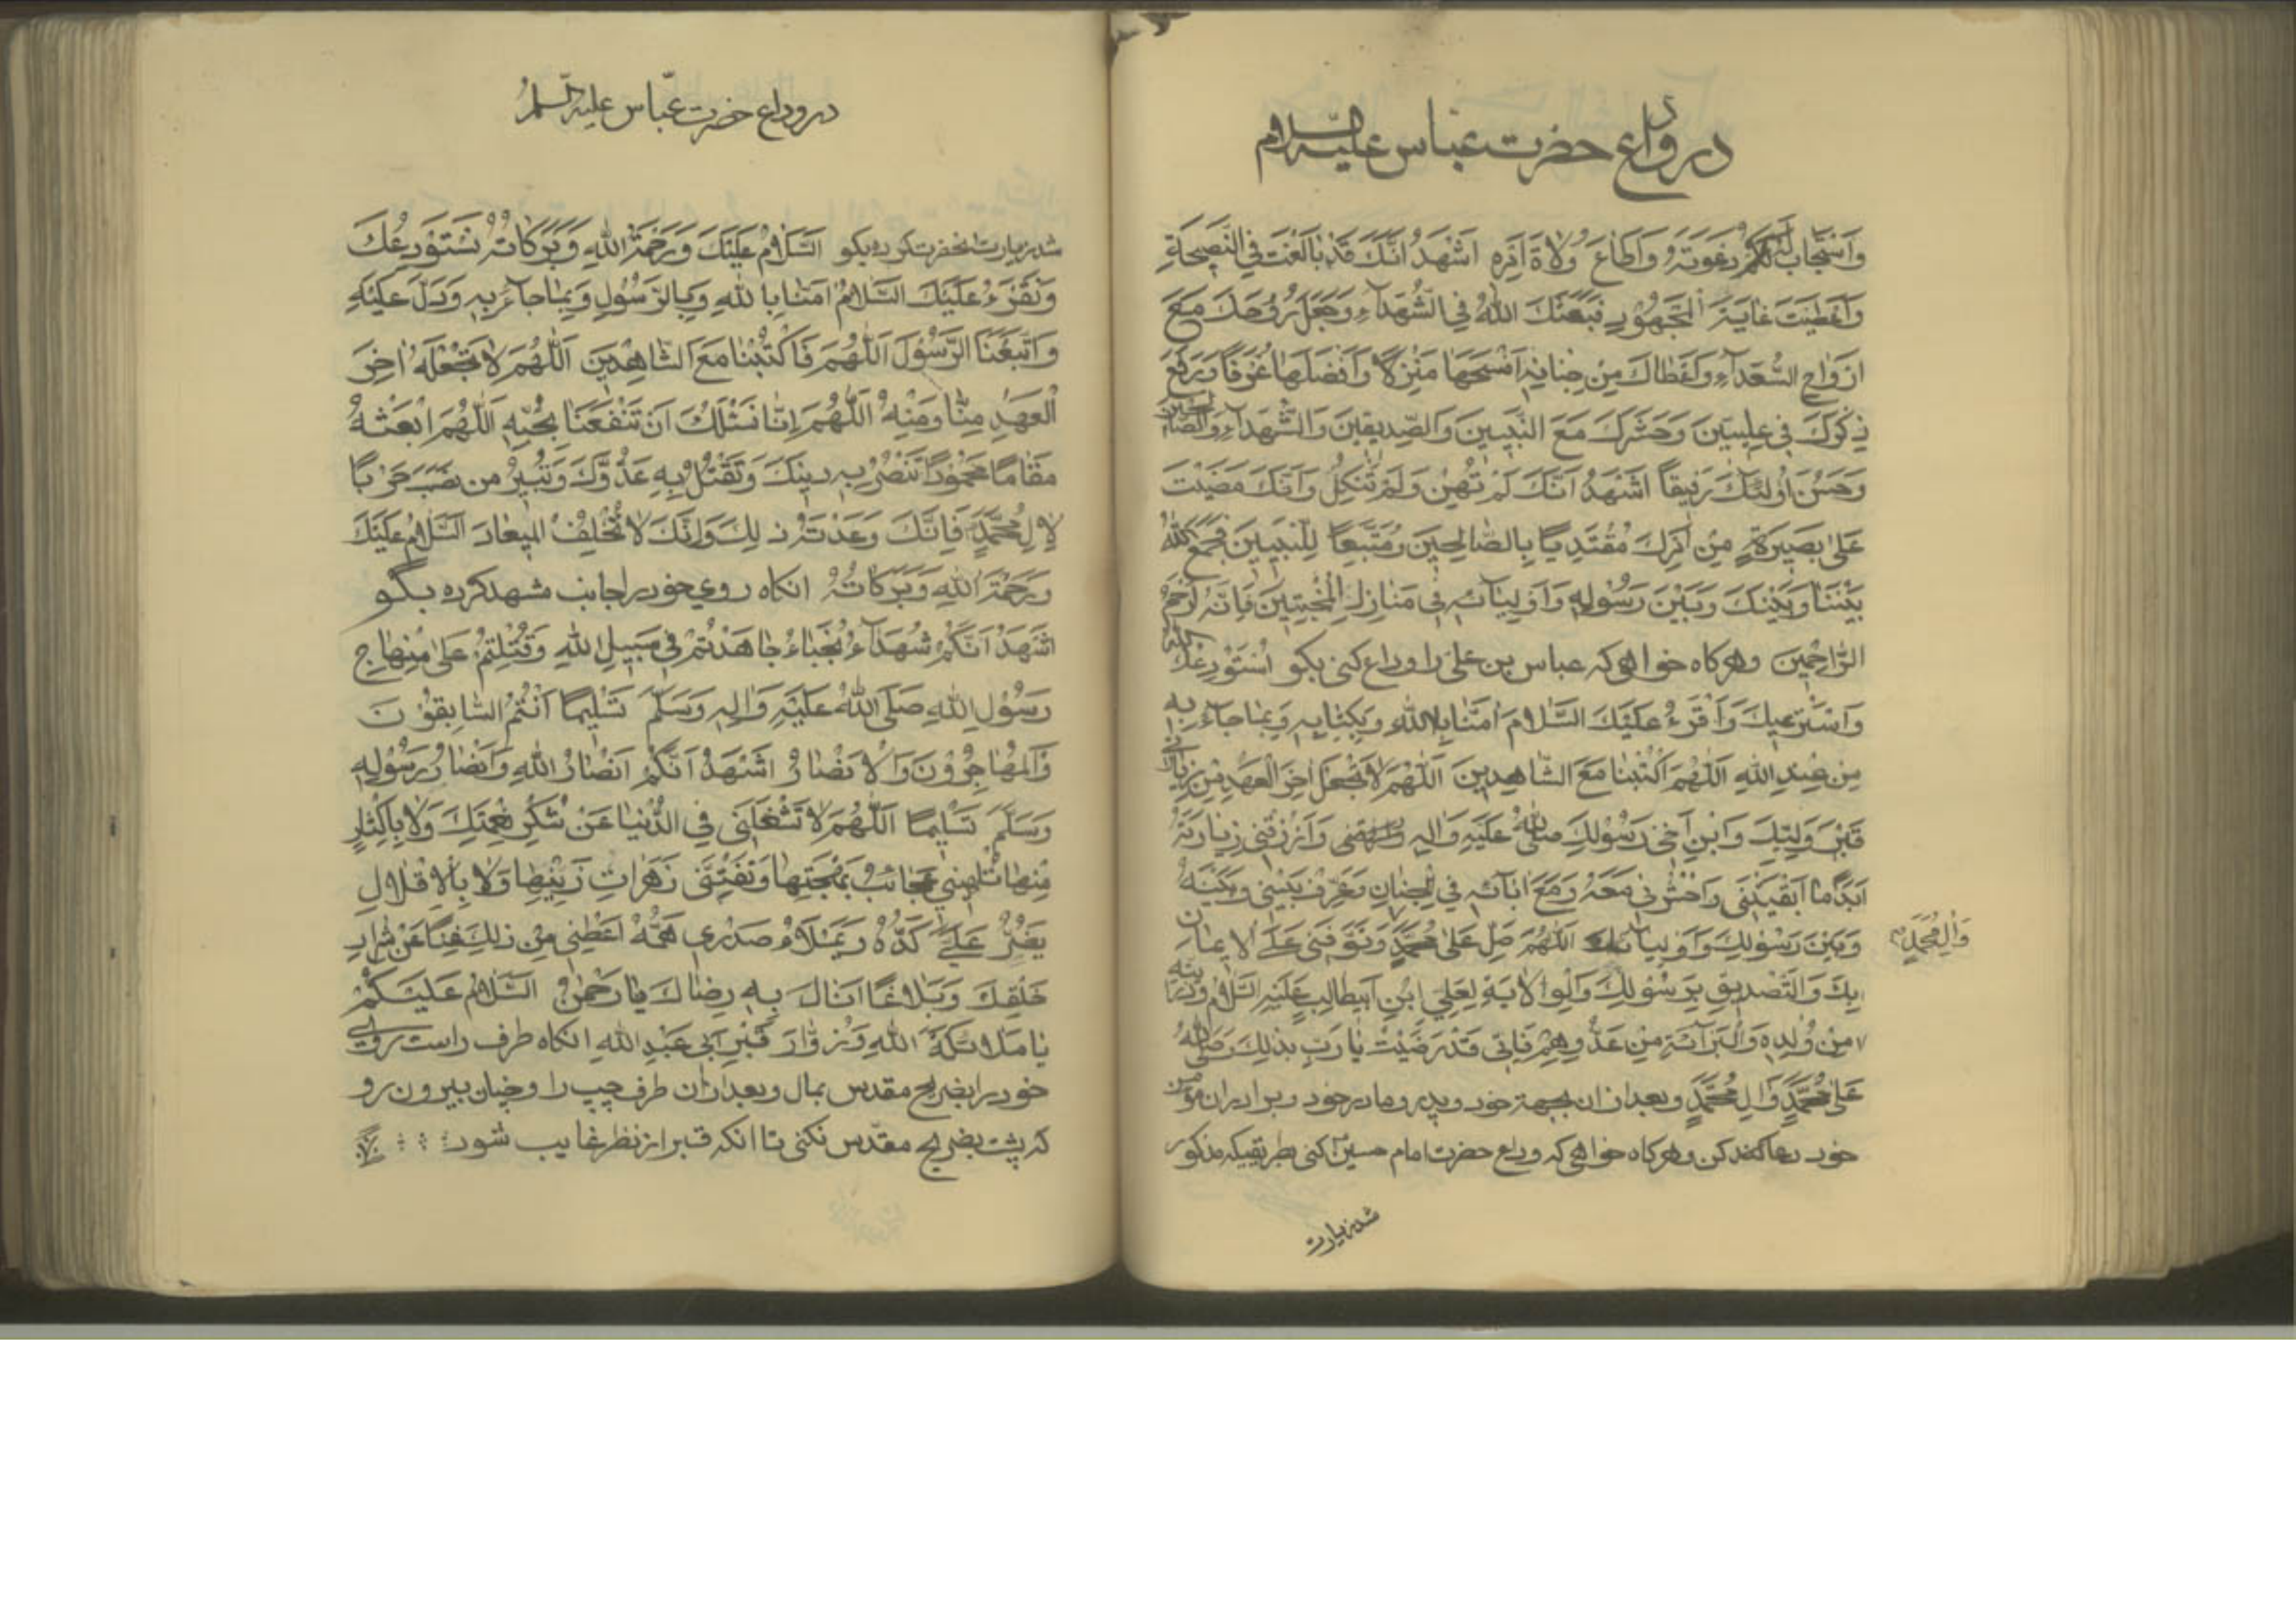 در وداع حضرت عباس علیه السلام
وَاسْتَجَابَ لَكُمْ دَعْوَتَهُ وَاَطَاعَ وُلاةَ اَمْرِهِ اَشْهَدُ اَنَّكَ قَدْ بَالَغْتَ فِي النَّصِيحَةِ
وَاَعْطَيْتَ غَايَةَ الْمَجْهُودِ فَبَعَثَكَ اللهُ فِي الشُّهَدَآءِ وَجَعَلَ رُوحَكَ مَعَ
اَرْوَاحِ السُّعَدَآءِ وَاَعْطَاكَ مِنْ جِنَانِهِ اَفْسَحَهَا مَنْزِلاً وَاَفْضَلَهَا غُرَفًا وَرَفَعَ
ذِكْرَكَ فِي عِلِّيِّينَ وَحَشَرَكَ مَعَ النَّبِيِّينَ وَالصِّدِّيقِينَ وَالشُّهَدَآءِ وَالصَّالِحِينَ
وَحَسُنَ اُولٰئِكَ رَفِيقًا اَشْهَدُ اَنَّكَ لَمْ تَهِنْ وَلَمْ تَنْكُلْ وَاَنَّكَ مَضَيْتَ
عَلىٰ بَصِيرَةٍ مِنْ اَمْرِكَ مُقْتَدِيًا بِالصَّالِحِينَ وَمُتَّبِعًا لِلنَّبِيِّينَ فَجَمَعَ اللهُ
بَيْنَنَا وَبَيْنَكَ وَبَيْنَ رَسُولِهِ وَاَوْلِيَآئِهِ فِي مَنَازِلِ الْمُخْبِتِينَ فَاِنَّهُ اَرْحَمُ
الرَّاحِمِينَ وهرکاه خواهی که عباس بن علی را وداع کنی بکو اَسْتَوْدِعُكَ اللهَ
وَاَسْتَرْعِيكَ وَاَقْرَءُ عَلَيْكَ السَّلامَ اٰمَنَّا بِاللهِ وَبِكِتَابِهِ وَبِمَا جَآءَ بِهِ
مِنْ عِنْدِ اللهِ اَللّٰهُمَّ اكْتُبْنَا مَعَ الشَّاهِدِينَ اَللّٰهُمَّ لاَ تَجْعَلْ اٰخِرَ الْعَهْدِ مِنْ زِيَارَتِي
قَبْرَ وَلِيِّكَ وَابْنِ اَخِي رَسُولِكَ صَلَّى اللهُ عَلَيْهِ وَاٰلِهِ وَارْزُقْنِي زِيَارَتَهُ
اَبَدًا مَا اَبْقَيْتَنِي وَاحْشُرْنِي مَعَهُ وَمَعَ اٰبَآئِهِ فِي الْجِنَانِ وَعَرِّفْ بَيْنِي وَبَيْنَهُ
وَبَيْنَ رَسُولِكَ وَاَوْلِيَآئِكَ اَللّٰهُمَّ صَلِّ عَلىٰ مُحَمَّدٍ وَتَوَفَّنِي عَلَى الاِيمَانِ
وَاٰلِ مُحَمَّدٍ
بِكَ وَالتَّصْدِيقِ بِرَسُولِكَ وَالْوِلاَيَةِ لِعَلِيِّ ابْنِ اَبِيطَالِبٍ عَلَيْهِ السَّلاَمُ وَذُرِّيَّتِهِ
مِنْ وُلْدِهِ وَالْبَرَآئَةِ مِنْ عَدُوِّهِمْ فَاِنِّي قَدْ رَضِيْتُ يَا رَبِّ بِذٰلِكَ وَصَلَّى اللهُ
عَلىٰ مُحَمَّدٍ وَاٰلِ مُحَمَّدٍ وبعد از ان بجهة خود وپدر ومادر خود وبرادران مؤمن
خود دعا کن وهرکاه خواهی که وداع حضرت امام حسین کنی بطریقیکه مذکور
شد زیارت
در وداع حضرت عبّاس علیه السلم
شد زیارت انحضرت کرده بکو اَلسَّلاَمُ عَلَيْكَ وَرَحْمَةُ اللهِ وَبَرَكَاتُهُ نَسْتَوْدِعُكَ
وَنَقْرَءُ عَلَيْكَ السَّلاَمُ اٰمَنَّا بِاللهِ وَبِالرَّسُولِ وَبِمَا جَآءَ بِهِ وَدَلَّ عَلَيْهِ
وَاتَّبَعْنَا الرَّسُولَ اَللّٰهُمَّ فَاكْتُبْنَا مَعَ الشَّاهِدِينَ اَللّٰهُمَّ لاَ تَجْعَلْهُ اٰخِرَ
الْعَهْدِ مِنَّا وَمِنْهُ اَللّٰهُمَّ اِنَّا نَسْئَلُكَ اَنْ تَنْفَعَنَا بِحُبِّهِ اَللّٰهُمَّ ابْعَثْهُ
مَقَامًا مَحْمُودًا تَنْصُرُ بِهِ دِينَكَ وَتَقْتُلُ بِهِ عَدُوَّكَ وَتُبِيرُ مَنْ نَصَبَ حَرْبًا
لِاٰلِ مُحَمَّدٍ فَاِنَّكَ وَعَدْتَهُ ذٰلِكَ وَاِنَّكَ لاَ تُخْلِفُ الْمِيعَادَ اَلسَّلاَمُ عَلَيْكَ
وَرَحْمَةُ اللهِ وَبَرَكَاتُهُ انکاه روی خود را جانب شهدا کرده بگو
اَشْهَدُ اَنَّكُمْ شُهَدَآءُ نُجَبَاءُ جَاهَدْتُمْ فِي سَبِيلِ اللهِ وَقُتِلْتُمْ عَلىٰ مِنْهَاجِ
رَسُولِ اللهِ صَلَّى اللهُ عَلَيْهِ وَاٰلِهِ وَسَلَّمَ تَسْلِيمًا اَنْتُمُ السَّابِقُونَ
وَالْمُهَاجِرُونَ وَالْاَنْصَارُ اَشْهَدُ اَنَّكُمْ اَنْصَارُ اللهِ وَاَنْصَارُ رَسُولِهِ
وَسَلَّمَ تَسْلِيمًا اَللّٰهُمَّ لاَ تَشْغَلْنِي فِي الدُّنْيَا عَنْ شُكْرِ نِعْمَتِكَ وَلاَ بِاِكْثَارٍ
مِنْهَا تُلْهِينِي عَجَائِبُ بَهْجَتِهَا وَتَفْتِنَنِي زَهَرَاتُ زِينَتِهَا وَلاَ بِاِقْلاَلٍ
يَضُرُّ عَلَيَّ كَدُّهُ وَيَمْلَأُ صَدْرِي هَمُّهُ اَعْطِنِي مِنْ ذٰلِكَ غِنًا عَنْ شِرَارِ
خَلْقِكَ وَبَلاَغًا اَنَالُ بِهِ رِضَاكَ يَا رَحْمٰنُ اَلسَّلاَمُ عَلَيْكُمْ
يَا مَلاَئِكَةَ اللهِ وَزُوَّارَ قَبْرِ اَبِي عَبْدِ اللهِ انکاه طرف راست روی
خود را بضریح مقدس بمال وبعد ازان طرف چپ را وچنان بیرون رو
که پشت بضریح مقدّس نکنی تا انکه قبر از نظر غایب شود